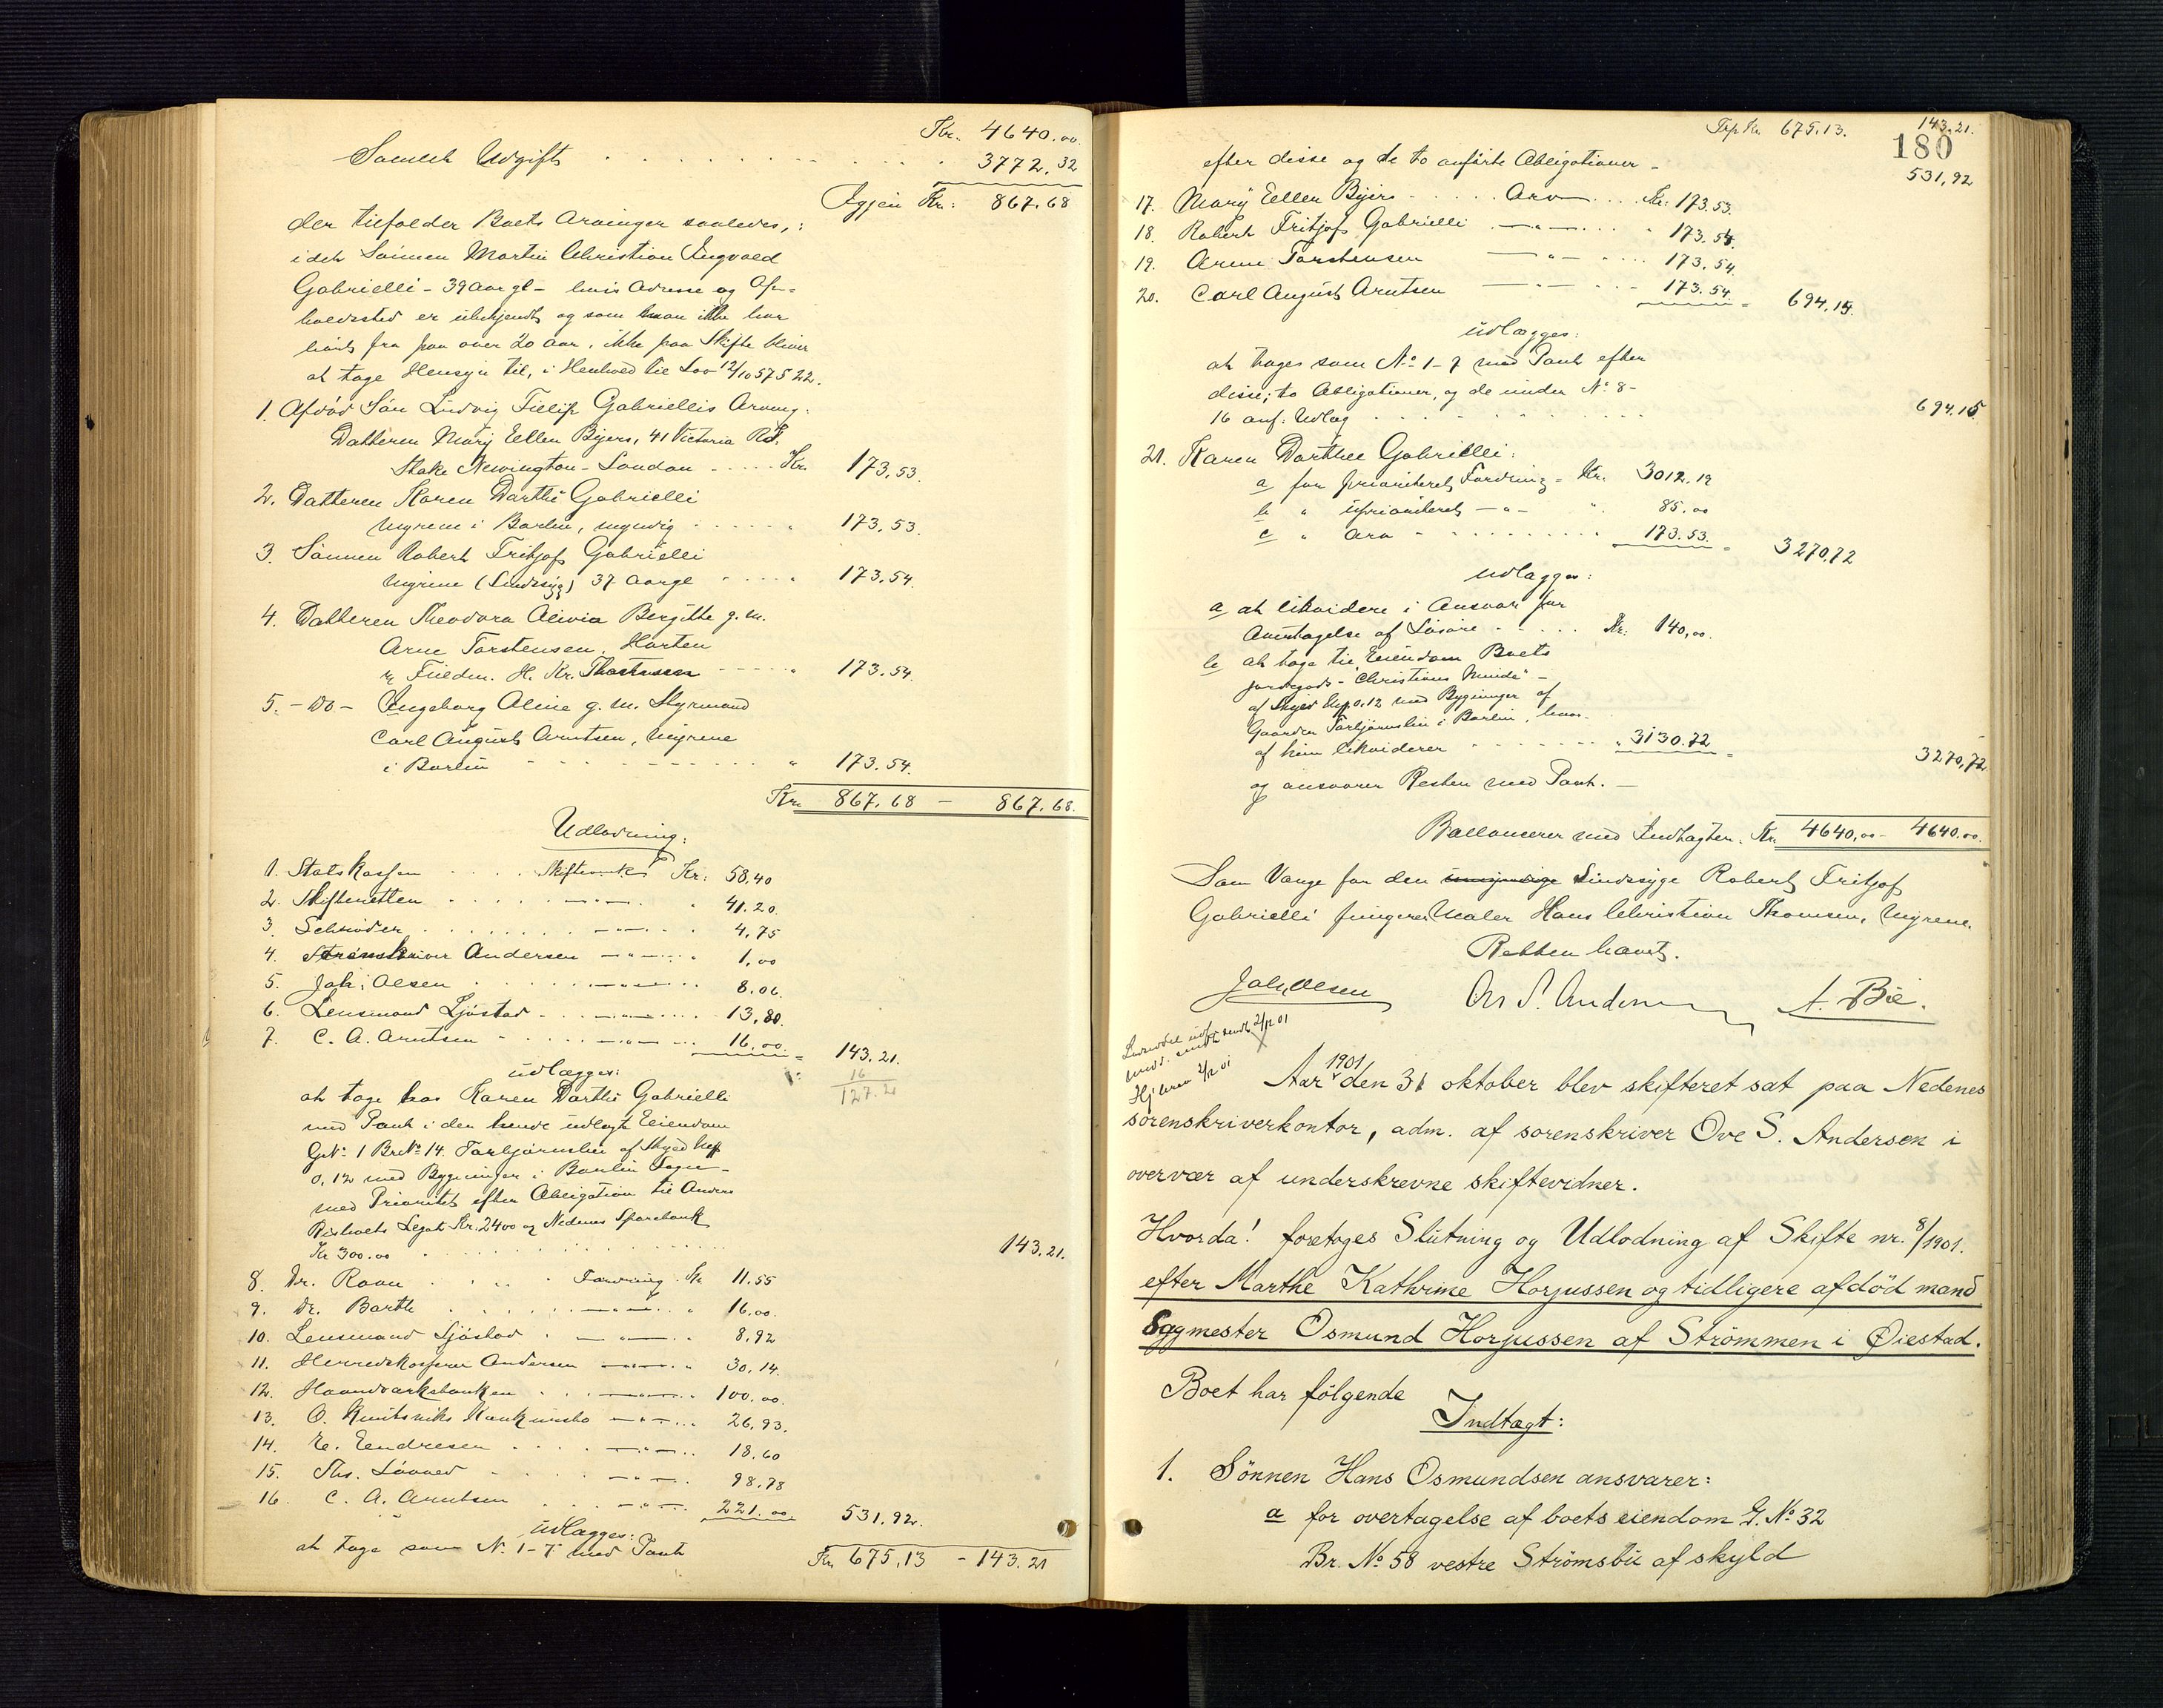 Kr. 4640.00
Samlet Udgift . . . . . . . . . . 3772.32
Igjen Kr: 867.68
der tilfalder Boets Arvinger saaledes,:
idet Sønnen Martin Christian Ingvald
Gabrielli - 39 Aar gl - hvis Adresse og Op-
holdssted er ubekjendt og som man ikke har
hørt fra paa over 20 Aar, ikke paa Skifte bliver
at tage Hensyn til, i Henhold til Lov 12/10 57 § 22.
1. Afdød Søn Ludvig Fillip Gabriellis Arving.
Datteren Mary Ellen Byers, 41 Victoria Rd.
Stoke Newington - London . . . . Kr. 173,53.
2. Datteren Karen Dorthe Gabrielli
Myrene i Barbu, myndig . . . . . " 173.53.
3. Sønnen Robert Fritjof Gabrielli
Myrene (Sindssyg) 37 Aar gl . . . . " 173.54.
4. Datteren Theodora Olivia Bergitte g. m.
Arne Torstensen, Horten
H. Kr. Thorstensen . . . . " 173.54.
5. - Do - Ingeborg Oline g. m. Styrmand
Carl August Arntsen, Myrene
i Barbu . . . . . . . . . . " 173.54.
Kr. 867.68 - 867.68.
Udlodning:
1. Statskassen . . . . Skifteomk. Kr: 58,40
2. Skifteretten . . . . —"— . . " 41.20.
3. Schrøder . . . . . . —"— . . 4,75
4. Sørenskriver Andersen —"— . . 1,00
5. Joh: Olsen . . . . . —"— . . 8.06.
6. Lensmand Sjøstad . . . —"— . . . 13,80.
7. C. A. Arntsen . . . . . —"— . . . 16.00. = 143.21.
16
127.2
udlægges:
at tage hos Karen Dorthe Gabrielli
med Pant i den hende udlagte Eiendom
G.No. 1 Br.No. 14. Torbjørnsbu af Skyld
0,12 med Bygninger i Barbu Sogn -
med Prioritet efter Obligation til Anders
Legat Kr. 2400 og Nedenes Sparebank
Kr 300.00 . . . . . . . . . . . . 143.21.
8. Dr. Raan . . . . . Fordring Kr 11.55
9. Dr. Barth . . . . —"— . . " 16.00.
10. Lensmand Sjøstad . —"— . " 8,92
11. Herredskasserer Andersen —"— . " 30.14.
12. Haandværksbanken . . —"— . . 100.00.
13. O. —"— . . . 26.93.
14. E. Endresen . . . . —"— . . 18.60
15. Ths. —"— . 98.78
16. C. A. Arntsen . . . —"— . . . 221.00. 531.92.
udlægges:
at tage som No. 1-7 med Pant Kr. 675,13 - 143.21
180
Trp Kr. 675.13. 143.21.
efter disse og de to anførte Obligationer - 531,92
17. Mary Ellen Byers . . . . . Arv . . . Kr: 173.53.
18. Robert Fritjof Gabrielli . —"— . . . " 173.54.
19. Arne Torstensen —"— . . . . 173.54.
20. Carl August Arntsen —"— . . . 173.54. = 694,15.
udlægges:
at tages som No. 1-7 med Pant efter
disse, to Obligationer, og de under No. 8-
16 anf. Udlæg . . . . . . . . . . 694.15
21. Karen Dorthee Gabrielli:
a for prioriteret Fordring = Kr. 3012.19
b " uprioriteret —"— " 85.00
c " Arv . . . . . . . . . . 173.53. = 3270,72
udlægges:
a at likvidere i Ansvar for
Overtagelse af Løsøre . . . . . . Kr: 140,00.
b at tage til Eiendom Boets
Jordegods - "Christians Minde" -
af Skyld 0.12 med Bygninger af
Gaarden Torbjørnsbu i Barbu, hvor-
af hun likviderer . . . . . . . " 3130.72 = 3270,72
og ansvarer Resten med Pant. -
Ballancerer med Indtægten. Kr. 4640,00 - 4640.00.
Som Værge for den umyndige Sindssyge Robert Fritjof
Gabrielli fungerer Maler Hans Christian Thomsen, Myrene.
Retten hævet.
Joh. Olsen Ove S. Andersen A. Bie.
sendt 2/12 01
2/12 01
Aar 1901 den 31 oktober blev skifteret sat paa Nedenes
sorenskriverkontor, adm. af sorenskriver Ove S. Andersen i
overvær af underskrevne skiftevidner.
Hvorda! foretoges Slutning og Udlodning af Skifte nr. 8/1901.
efter Marthe Kathrine Horjussen og tidligere afdöd mand
Bygmester Osmund Horjussen af Strömmen i Øiestad.
Boet har fölgende
Indtægt:
1. Sönnen Hans Osmundsen ansvarer:
a for overtagelse af boets eiendom G. No 32
Br. No 58 vestre Strömsbu af skyld